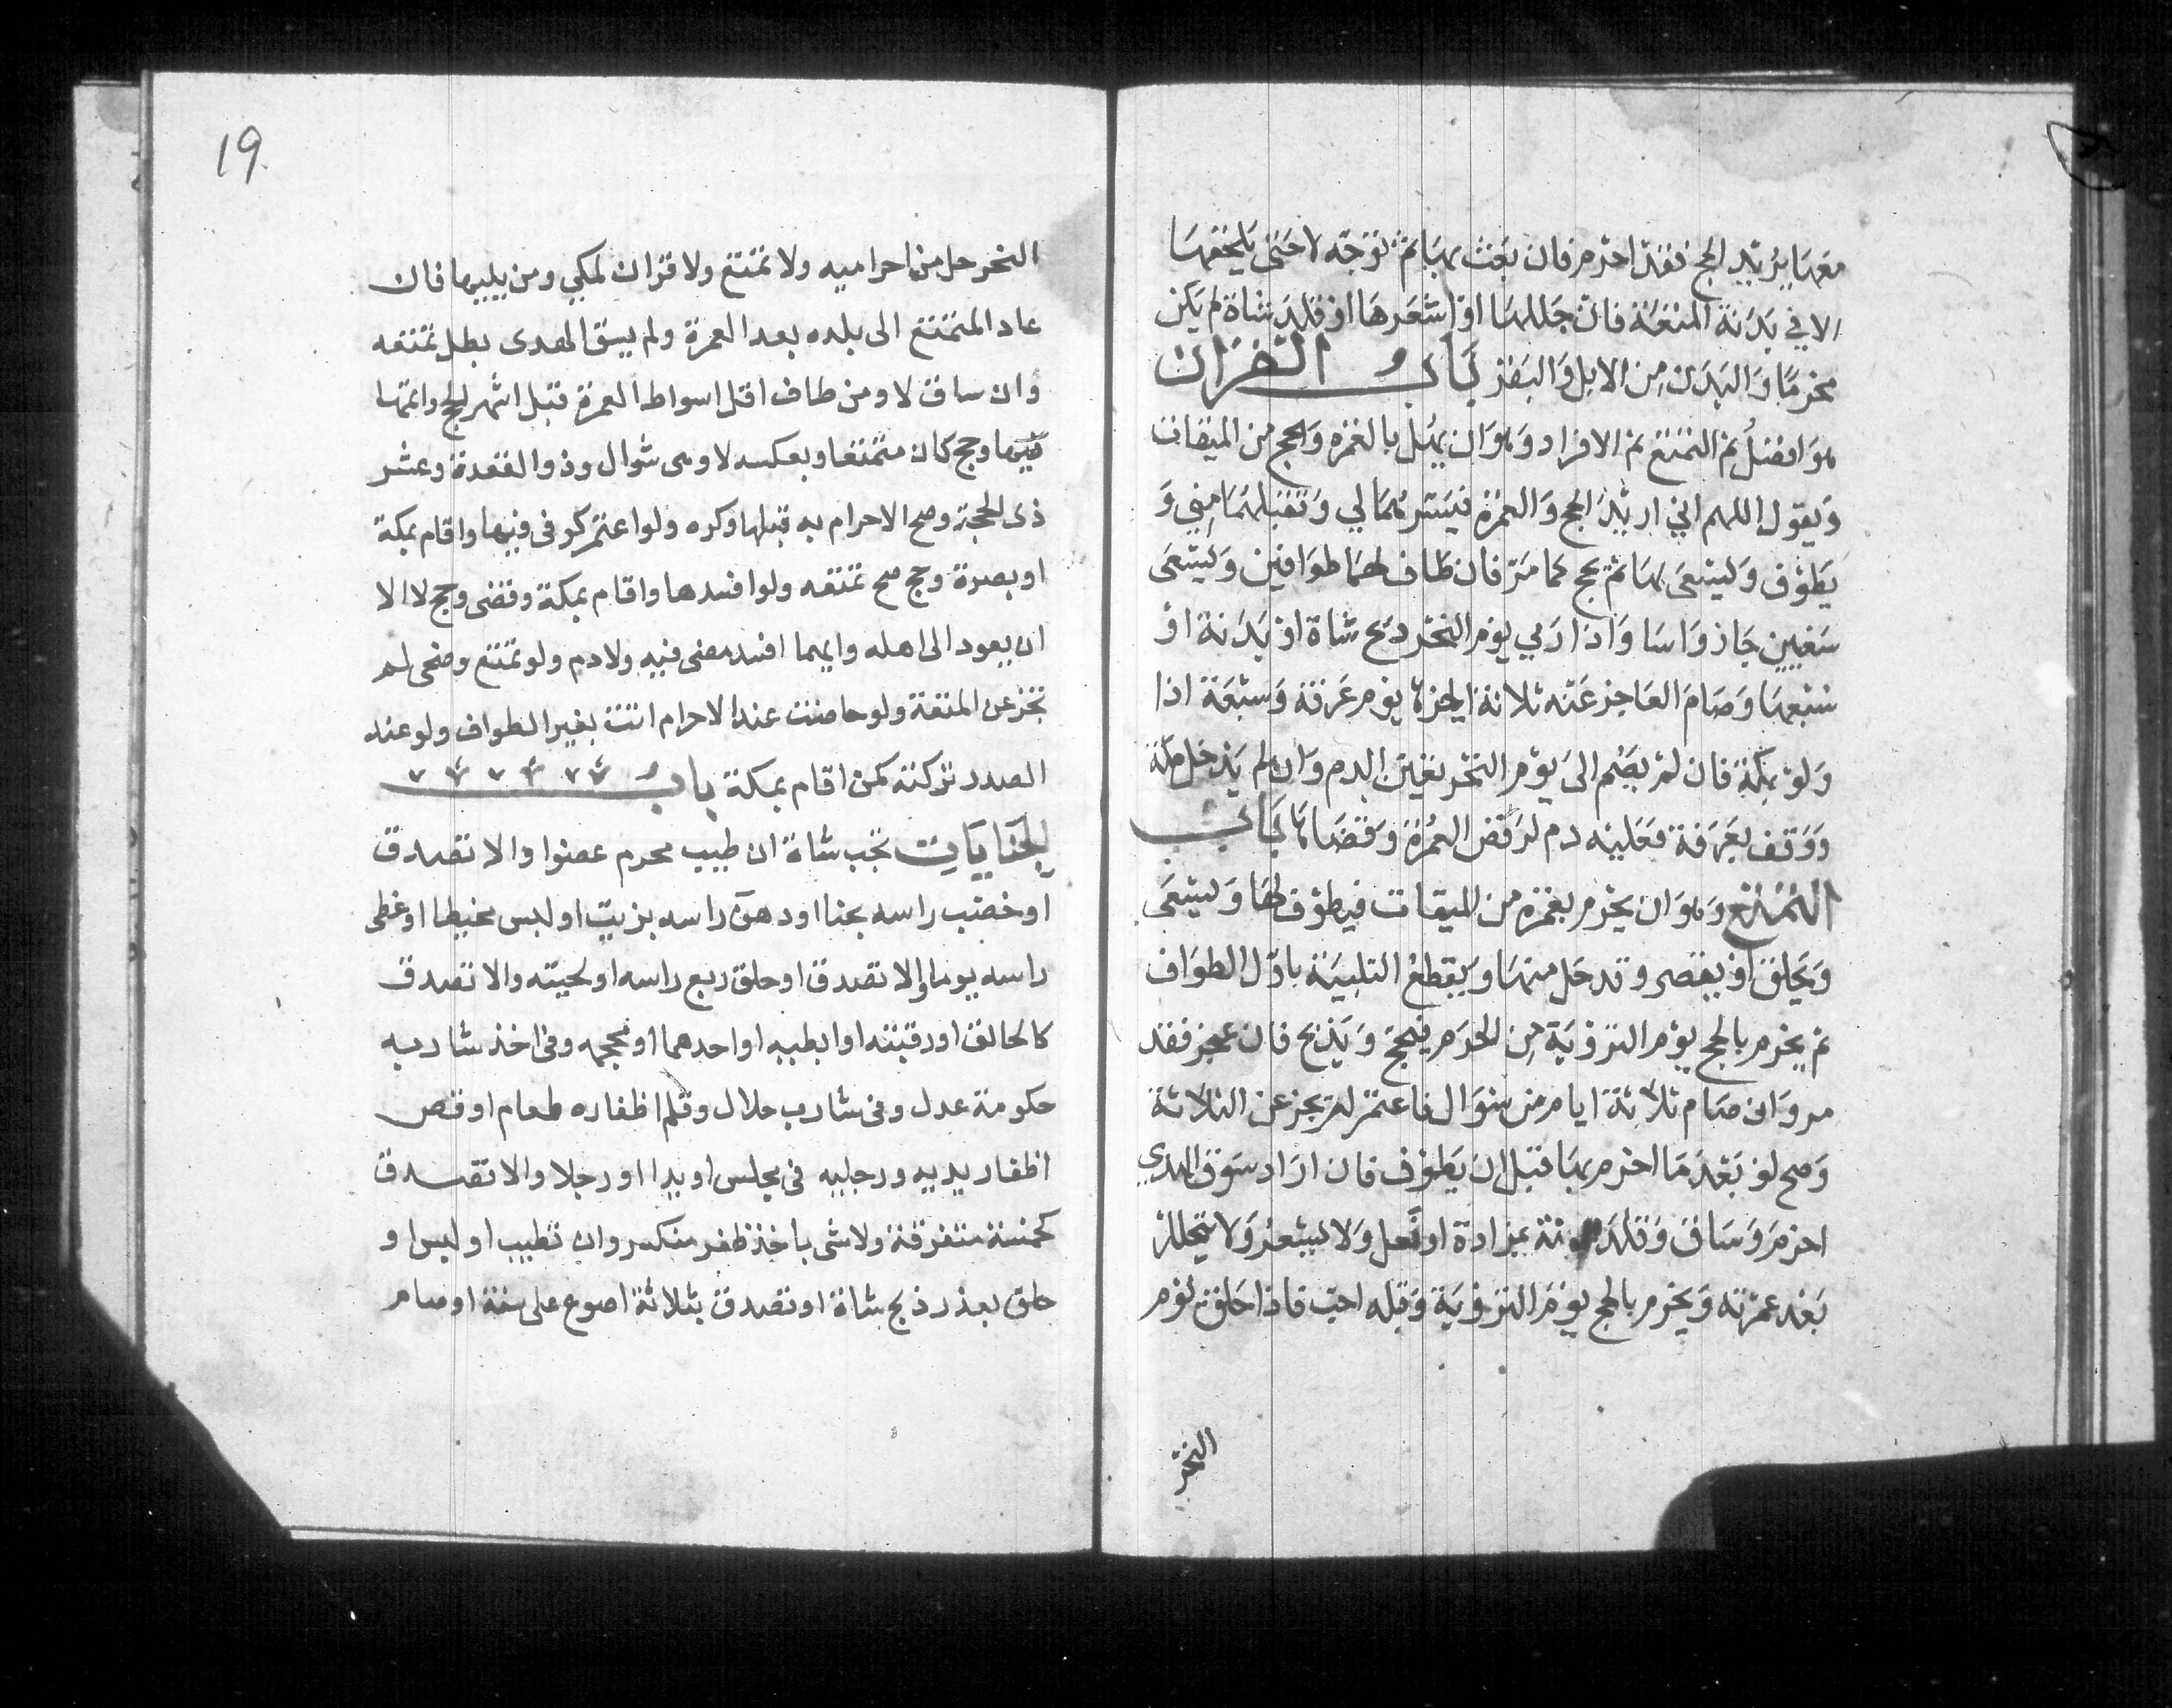 معها يريد الحج فقد احرم فان بعث بها ثم توجه لا حتى يلحقها
الا في بدنة المتعة فان جللها او اشعرها او قلد شاة لم يكن
محرما والبدن من الابل والبقر باب القران
هو افضل ثم التمتع ثم الافراد وهو ان يهل بالعمرة والحج من الميقات
ويقول اللهم اني اريد الحج والعمرة فيسرهما لي وتقبلهما مني و
يطوف وليسعى لها ثم يحج كما مر فان طاف لهما طوافين وليسعى
سعيين جاز واسا واذا رمي يوم النحر ذبح شاة او بدنة او
سبعها وصام العاجز عنه ثلاثة ايام اخرها يوم عرفة وسبعة اذا
ولو بمكة فان لم يصم الى يوم النحر تعين الدم وان لم يدخل مكة
ووقف بعرفة فعليه دم لرفض العمرة وقضاها باب
التمتع وهو ان يحرم بعمرة من الميقات فيطوف لها وليسعى
ويحلق او يقصر وقد حل منها ويقطع التلبية باول الطواف
ثم يحرم بالحج يوم التروية من الحرم فيحج ويذبح فان عجز فقد
مر وان صام ثلاثة ايام من شوال فاعتمر لم يجز عن الثلاثة
وصح لو بعد ما احرم بها قبل ان يطوف فان اراد سوق الهدي
احرم وساق وقلد بدنته بمزادة او نعل ولا ليشعر ولا يتحلل
بعد عمرته ويحرم بالحج يوم التروية وقبله احب فاذا حلق يوم
النحر
19
النحر حل من احراميه ولا تمتع ولا قران لمكي ومن يليها فان
عاد المتمتع الى بلده بعد العمرة ولم يسق الهدى بطل تمتعه
وان ساق لا ومن طاف اقل اسواط العمرة قبل اشهر الحج واتمها
فيها وحج كان متمتعا وبعكسه لا وهى شوال وذو القعدة وعشر
ذى الحجة وصح الاحرام به قبلها وكره ولو اعتمر كوفى فيها واقام بمكة
او بصرة وحج صح تمتعه ولو افسدها واقام بمكة وقضى وحج لا الا
ان يعود الى اهله وايهما افسد مضى فيه ولا دم ولو تمتع وضحى لم
تجز عن المتعة ولو حاضت عند الاحرام اتت بغير الطواف ولو عند
الصدر تركته كمن اقام بمكة باب
الجنايات تجب شاة ان طيب محرم عضوا والا تصدق
او خضب راسه بحنا او دهن راسه بزيت او لبس مخيطا او غطى
راسه يوما والا تصدق او حلق ربع راسه او لحيته والا تصدق
كالحالق او رقبته او ابطيه او احدهما او محجمه وفى اخذ شاربه
حكومة عدل وفى شارب حلال وقلم اظفاره طعام او قص
اظفار يديه ورجليه فى مجلس او يدا او رجلا والا تصدق
كخمسة متفرقة ولا شى باخذ ظفر منكسر وان تطيب او لبس او
حلق بعذر ذبح شاة او تصدق بثلاثة اصوع على ستة او صام